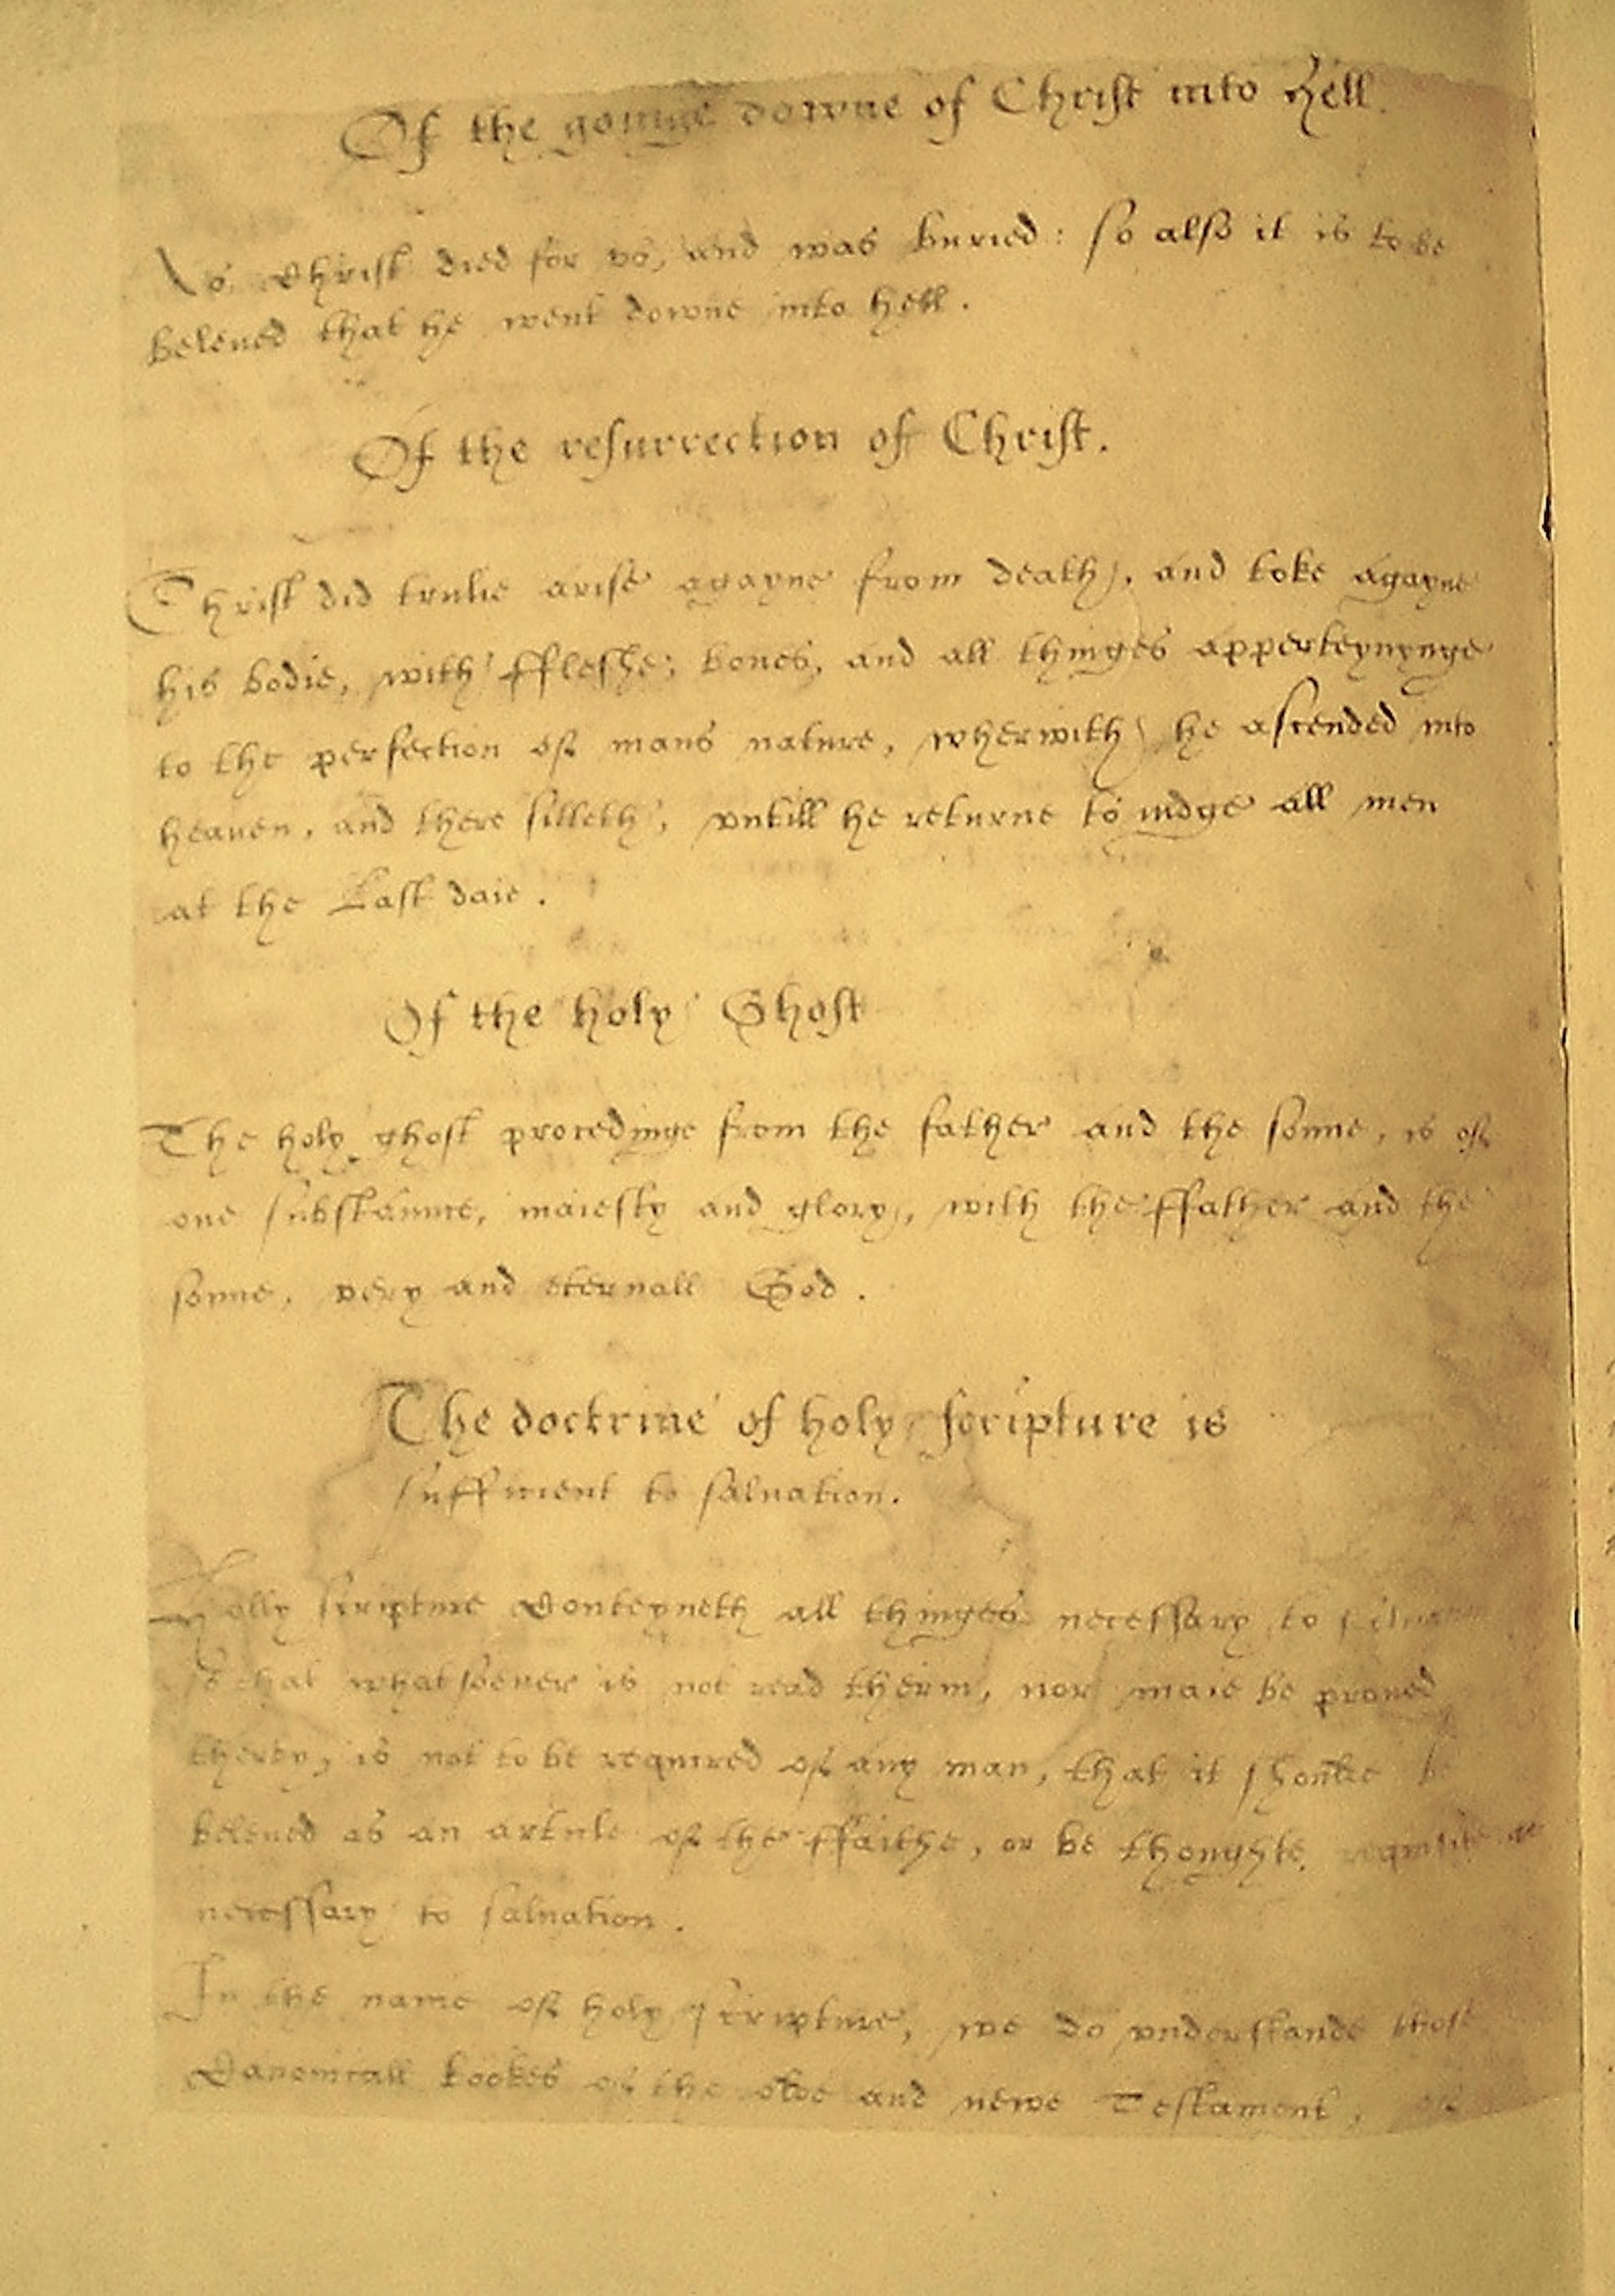 Of the goinge downe of Christ into Hell.
As Christ died for vs, and was buried: so also it is to be
beleued that he went downe into hell.
Of the resurrection of Christ.
Christ did trulie arise agayne from death, and toke agayne
his bodie, with fflesche, bones, and all thinges apperteynynge
to the perfection of mans nature, wherwith he ascended into
heauen, and there sitteth, vntill he returne to iudge all men
at the Last daie.
Of the holy Ghost
The holy ghost procedinge from the father and the sonne, is of
one substaunce, maiesty and glory, with the ffather and the
sonne, very and eternall God.
The doctrine of holy scripture is
sufficient to saluation.
Holly scripture Conteyneth all thinges necessary to
so that whatsoeuer is not read therin, nor maie be proued
therby, is not to be required of any man, that it shoulde be
beleued as an article of the ffaithe, or be thoughte requisite as
necessary to saluation.
In the name of holy scripture, we do vnderstande those
Canonicall bookes of the olde and newe Testament, of